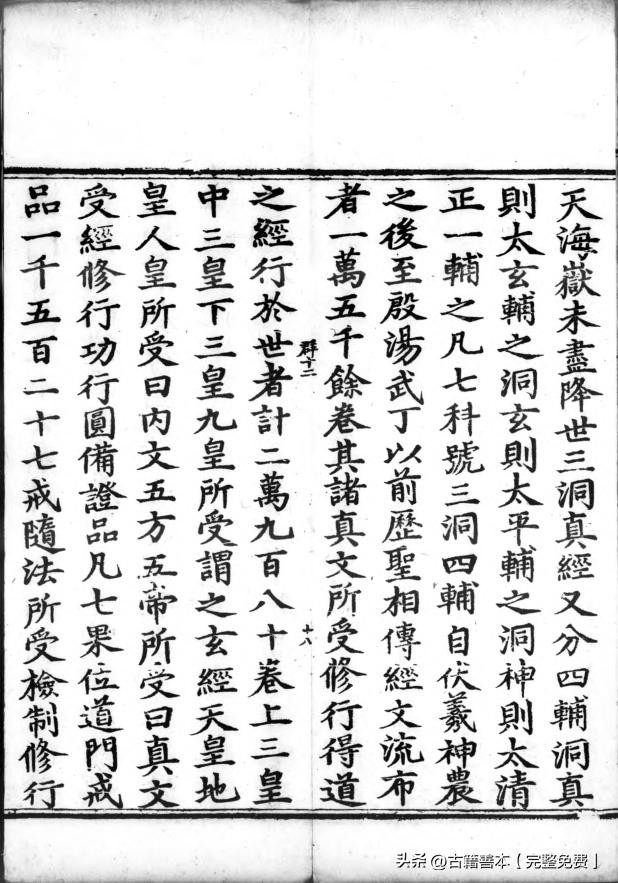 天海嶽未盡降世三洞真經又分四輔洞真
則太玄輔之洞玄則太平輔之洞神則太清
正一輔之凡七科號三洞四輔自伏羲神農
之後至殷湯武丁以前歷聖相傳經文流布
者一萬五千餘卷其諸真文所受修行得道
群十二
十八
之經行於世者計二萬九百八十卷上三皇
中三皇下三皇九皇所受謂之玄經天皇地
皇人皇所受曰內文五方五帝所受曰真文
受經修行功行圓備證品凡七果位道門戒
品一千五百二十七戒隨法所受檢制修行
头条 @古籍善本【完整免费】